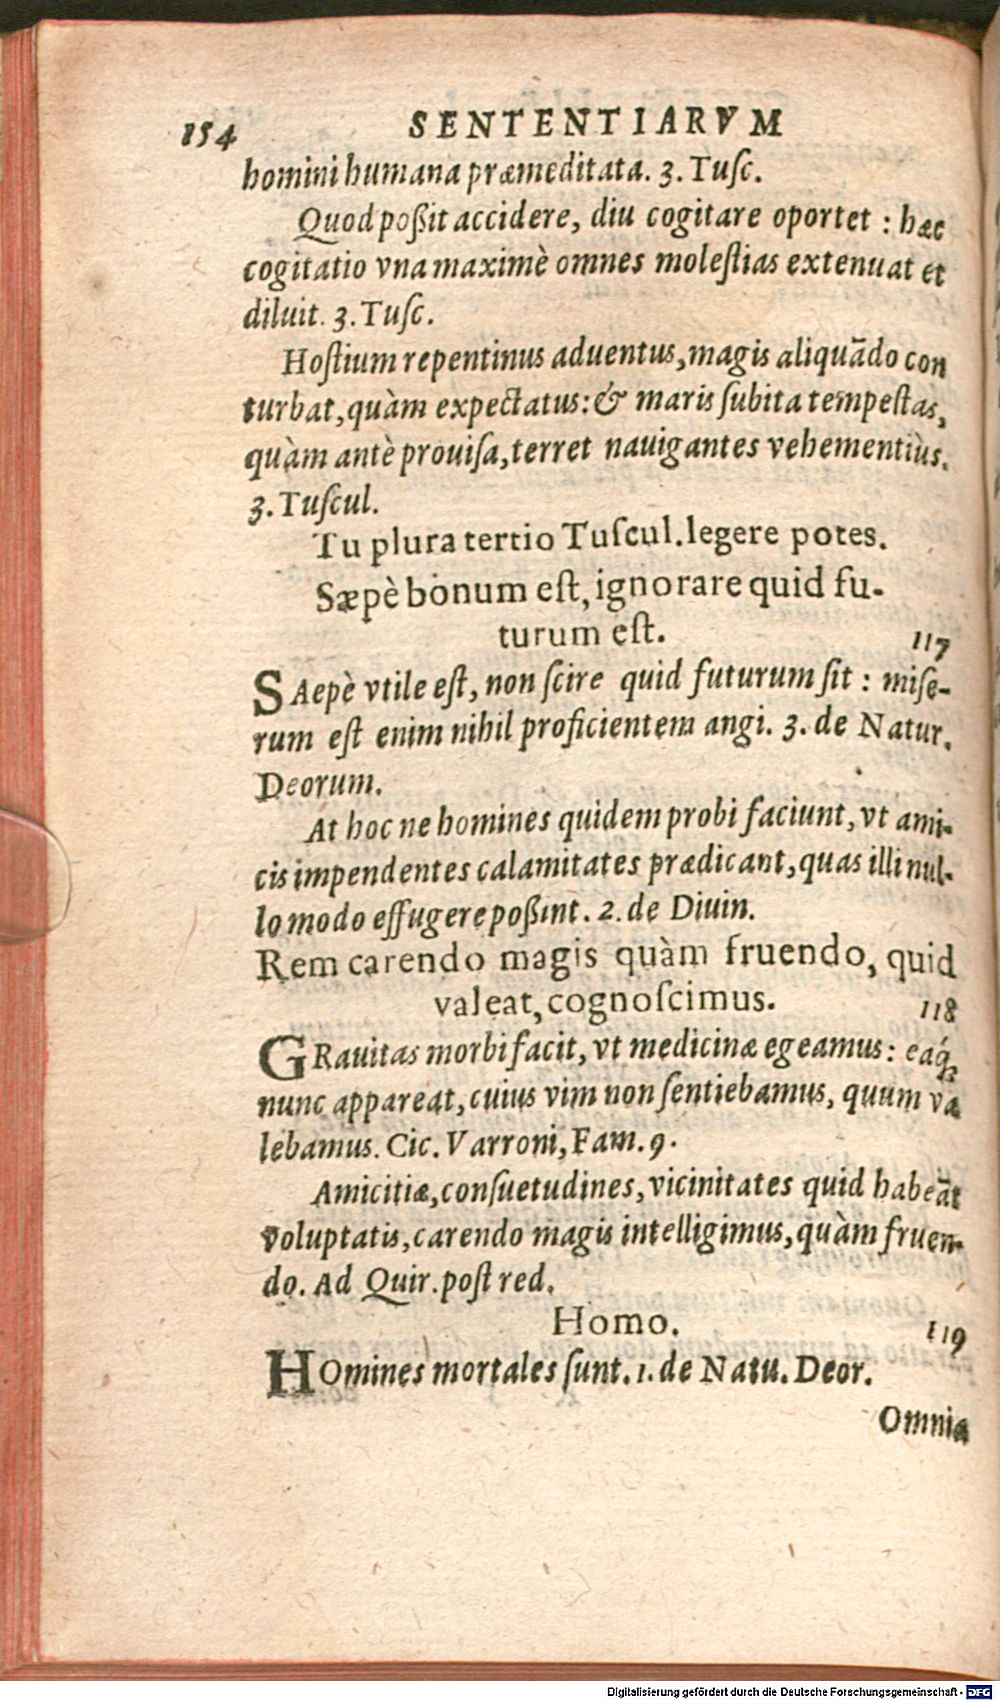 154 SENTENTIARVM
homini humana præmeditata. 3. Tuſc.
Quod poßit accidere, diu cogitare oportet : hæc
cogitatio vna maximè omnes moleſtias extenuat et
diluit. 3. Tuſc.
Hoſtium repentinus aduentus, magis aliquãdo con
turbat, quàm expectatus: & maris ſubita tempeſtas,
quàm antè prouiſa, terret nauigantes vehementiùs.
3. Tuſcul.
Tu plura tertio Tuſcul. legere potes.
Sæpè bonum eſt, ignorare quid fu-
turum eſt. 117
SAepè vtile eſt, non ſcire quid futurum ſit : miſe-
rum eſt enim nihil proficientem angi. 3. de Natur.
Deorum.
At hoc ne homines quidem probi faciunt, vt ami-
cis impendentes calamitates prædicant, quas illi nul-
lo modo effugere poßint. 2. de Diuin.
Rem carendo magis quàm fruendo, quid
valeat, cognoſcimus. 118
GRauitas morbi facit, vt medicinæ egeamus: eáq;
nunc appareat, cuius vim non ſentiebamus, quum va
lebamus. Cic. Varroni, Fam. 9.
Amicitiæ, conſuetudines, vicinitates quid habeãt
voluptatis, carendo magis intelligimus, quàm fruen-
do. Ad Quir. poſt red.
Homo. 119
HOmines mortales ſunt. 1. de Natu. Deor.
Omnia
Digitalisierung gefördert durch die Deutsche Forschungsgemeinschaft - DFG